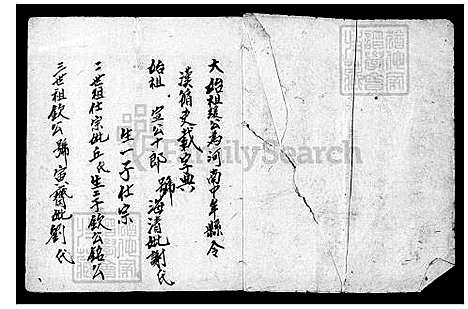 大始祖琰公為河南中牟縣令
漢循史載字典
始祖 宣公十郎 號海清妣謝氏
生一子仕宗
二世祖仕宗妣丘氏生二子欽公銘公
三世祖欽公號寅齋妣劉氏
FamilySearch